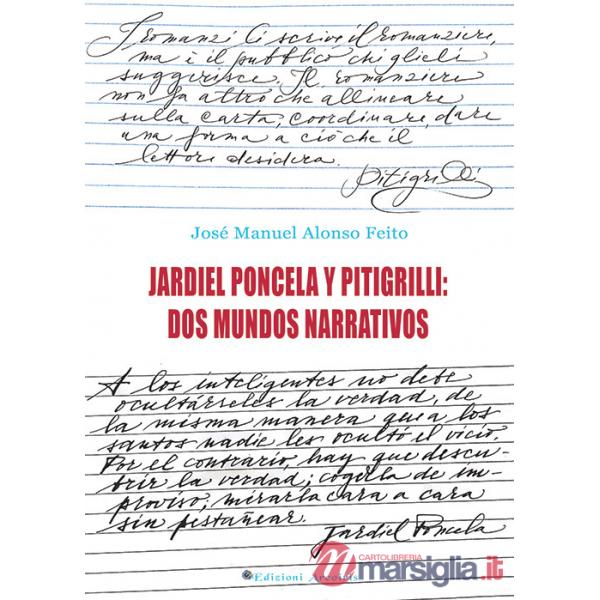 I romanzi li scrive il romanziere,
ma è il pubblico che glieli
suggerisce. Il romanziere
non fa altro che allineare
sulla carta, coordinare, dare
una forma a ciò che il
lettore desidera.
Pitigrilli
José Manuel Alonso Feito
JARDIEL PONCELA Y PITIGRILLI:
DOS MUNDOS NARRATIVOS
A los inteligentes no debe
ocultárseles la verdad, de
la misma manera que a los
santos nadie les ocultó el vicio.
Por el contrario, hay que descu-
brir la verdad; cogerla de im-
proviso; mirarla cara a cara
sin pestañear.
Jardiel Poncela
Edizioni Arcoiris
CARTOLIBRERIA
marsiglia.it